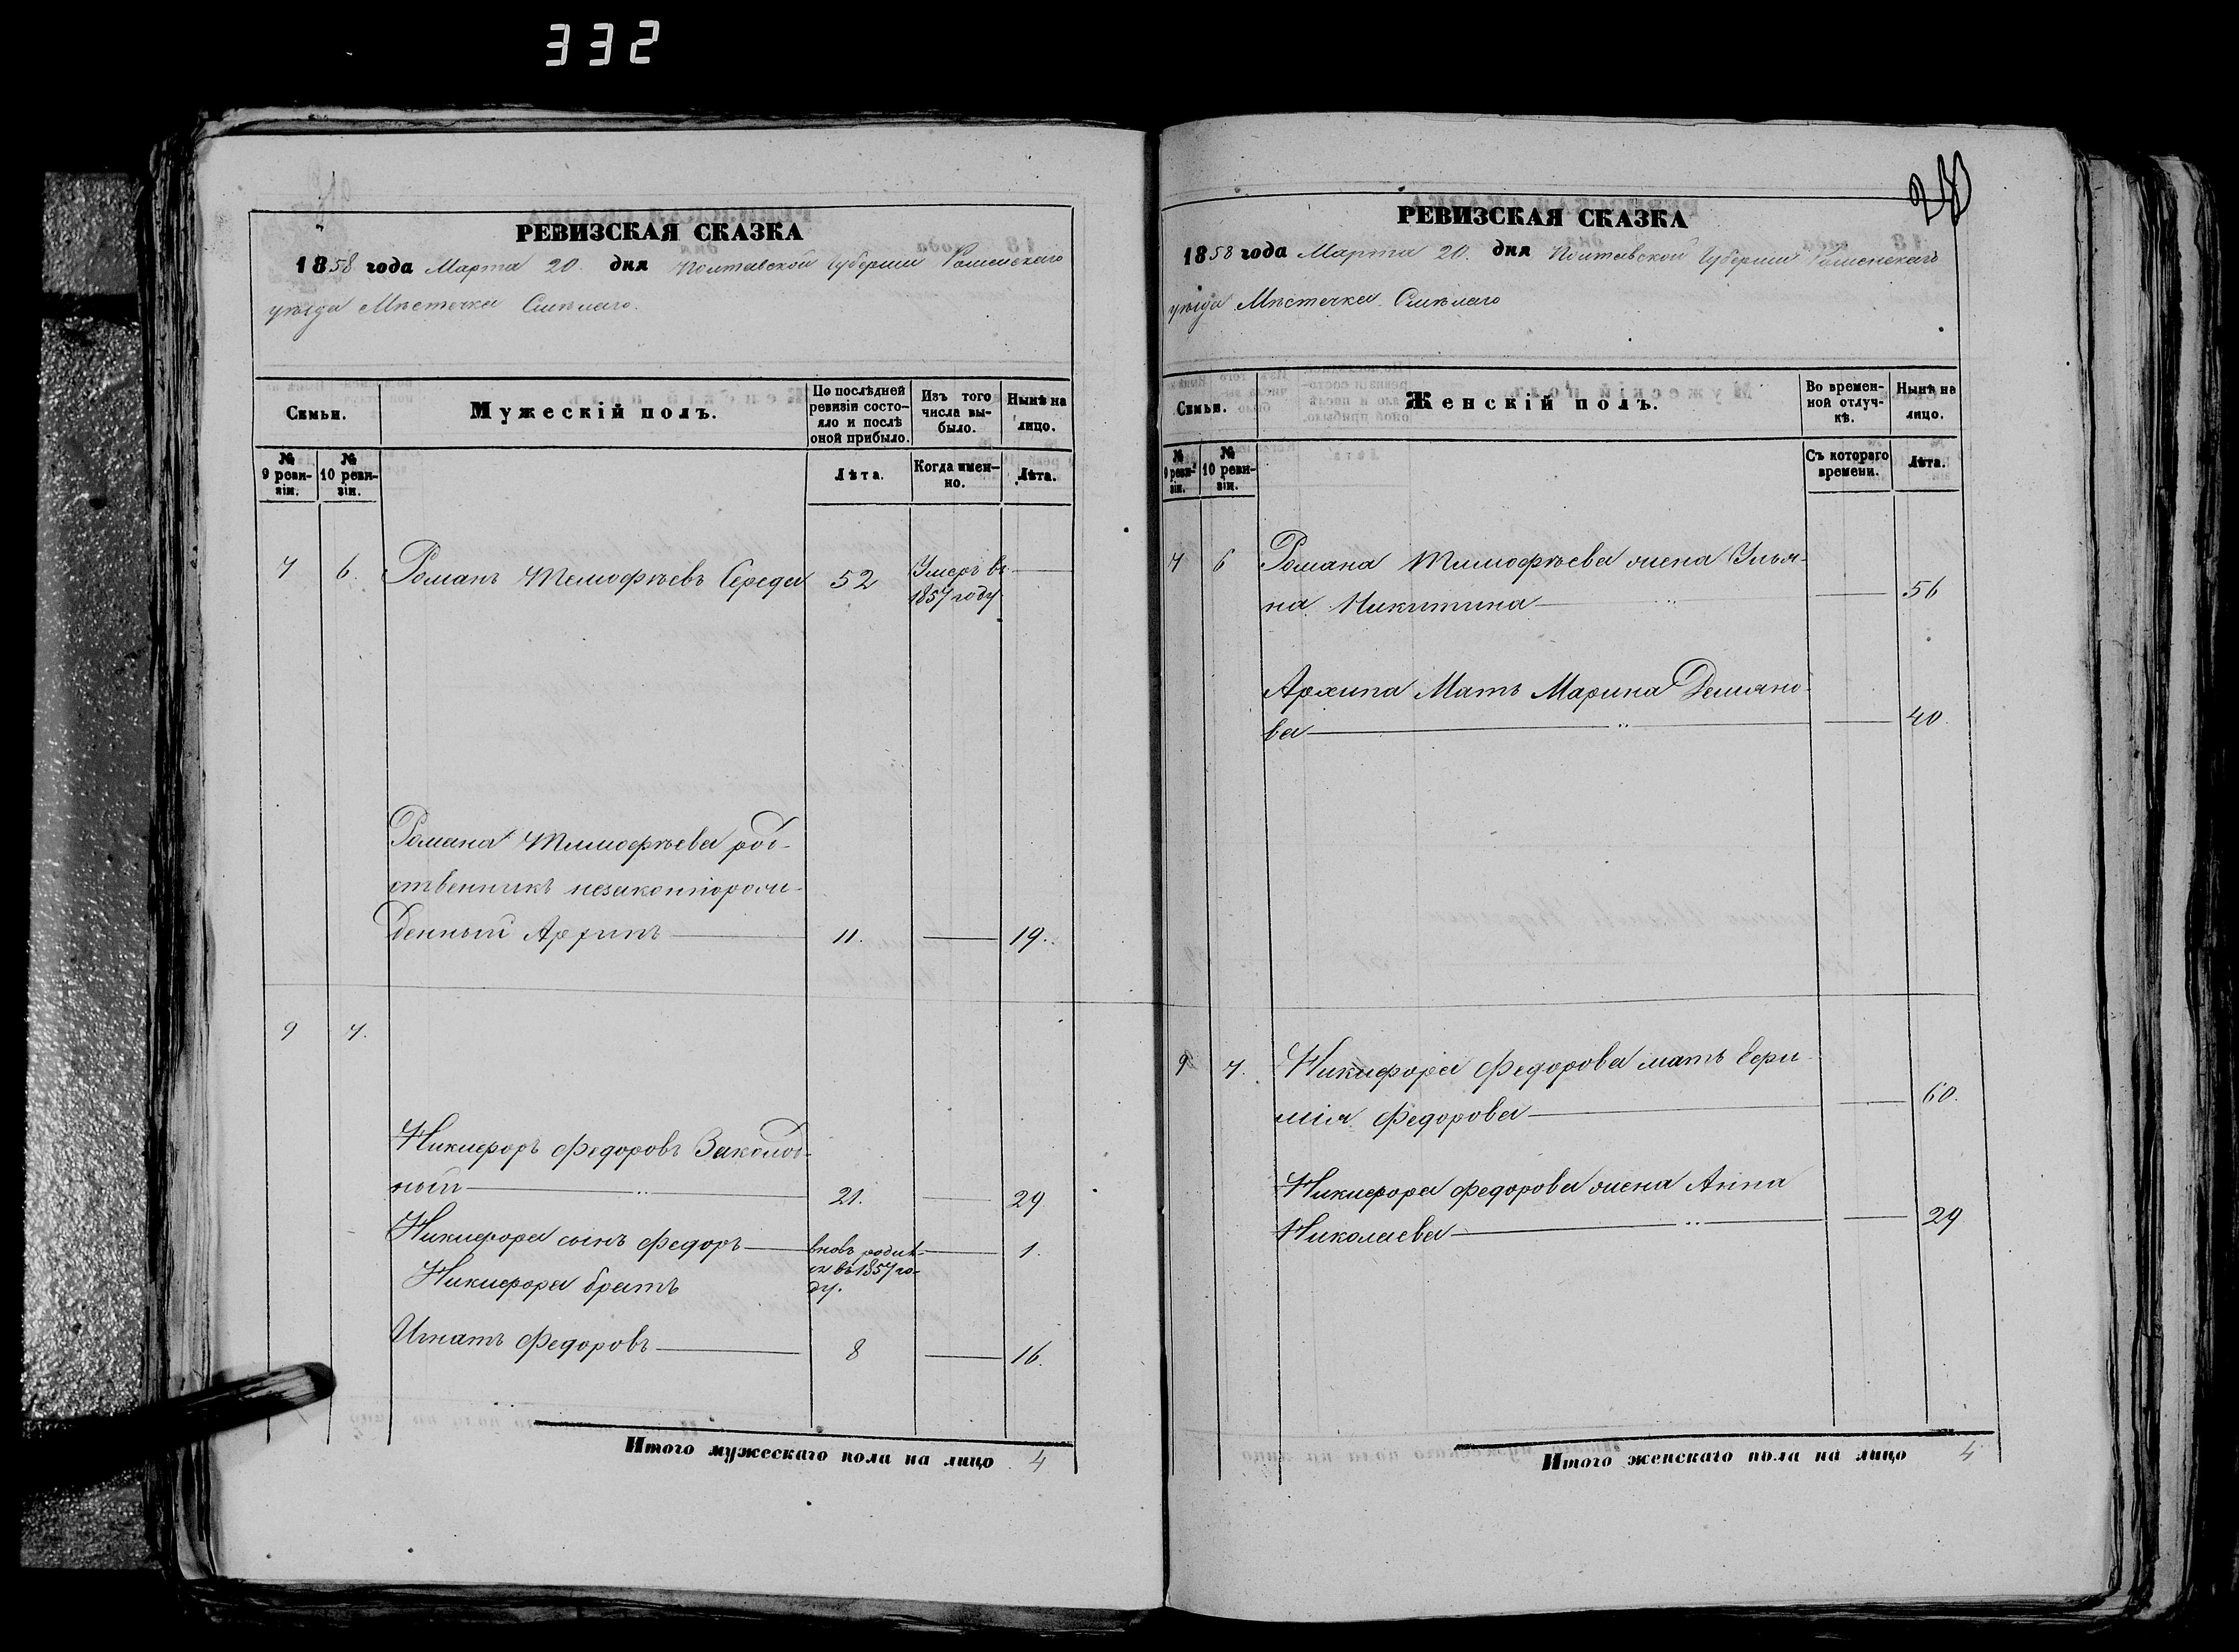 332
РЕВИЗСКАЯ СКАЗКА
1858 года Марта 20. дня Полтавской Губернии Роменскаго
уѣзда Мѣстечка Смѣлаго.
Семьи.
Мужескій полъ.
По послѣдней ревизіи состо-
яло и послѣ оной прибыло.
Изъ того числа вы-
было.
Нынѣ на лицо.
№ 9 реви-
зіи.
№ 10 реви-
зіи.
Лѣта.
Когда имен-
но.
Лѣта.
7 6. Романъ Тимофѣевъ Середа 52 Умеръ въ
1857 году
Романа Тимофѣева род-
ственникъ незаконнорож-
денный Архипъ 11. 19.
9 7.
Никифоръ Федоровъ Заколод-
ный 21. 29
Никифора сынъ Федоръ вновь родил- 1.
ся въ 1857 го-
ду.
Никифора братъ
Игнатъ Федоровъ 8 16.
Итого мужескаго пола на лицо 4
РЕВИЗСКАЯ СКАЗКА
1858 года Марта 20. дня Полтавской Губерніи Роменскаго
уѣзда Мѣстечка Смѣлаго
Семьи.
Женскій полъ.
Во времен-
ной отлуч-
кѣ.
Нынѣ на лицо.
№ 9 реви-
зіи.
№ 10 реви-
зіи.
Съ котораго времени.
Лѣта.
7 6 Романа Тимофѣева жена Улья-
на Никитина 56
Архипа Мать Марина Демяно-
ва 40.
9 7. Никифора Федорова мать
Федорова 60.
Никифора Федорова жена Анна
Николаева 29
Итого женскаго пола на лицо 4